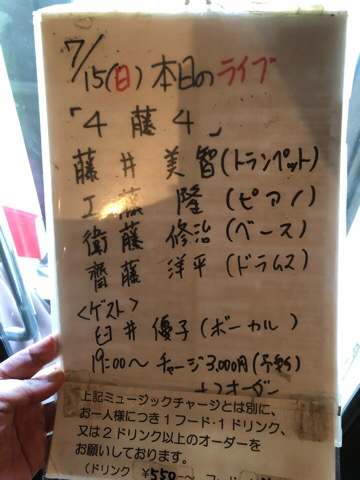 7/15(日)本日のライブ
「4 藤 4」
藤 井 美 智(トランペット)
工 藤 隆(ピアノ)
衛 藤 修治(ベース)
齋 藤 洋平(ドラムス)
<ゲスト>
臼井 優子(ボーカル)
19:00〜 チャージ3,000円(予約)
+フオーダー
上記ミュージックチャージとは別に、
お一人様につき1フード・1ドリンク、
又は2ドリンク以上のオーダーを
お願いしております。
(ドリンク ¥550〜